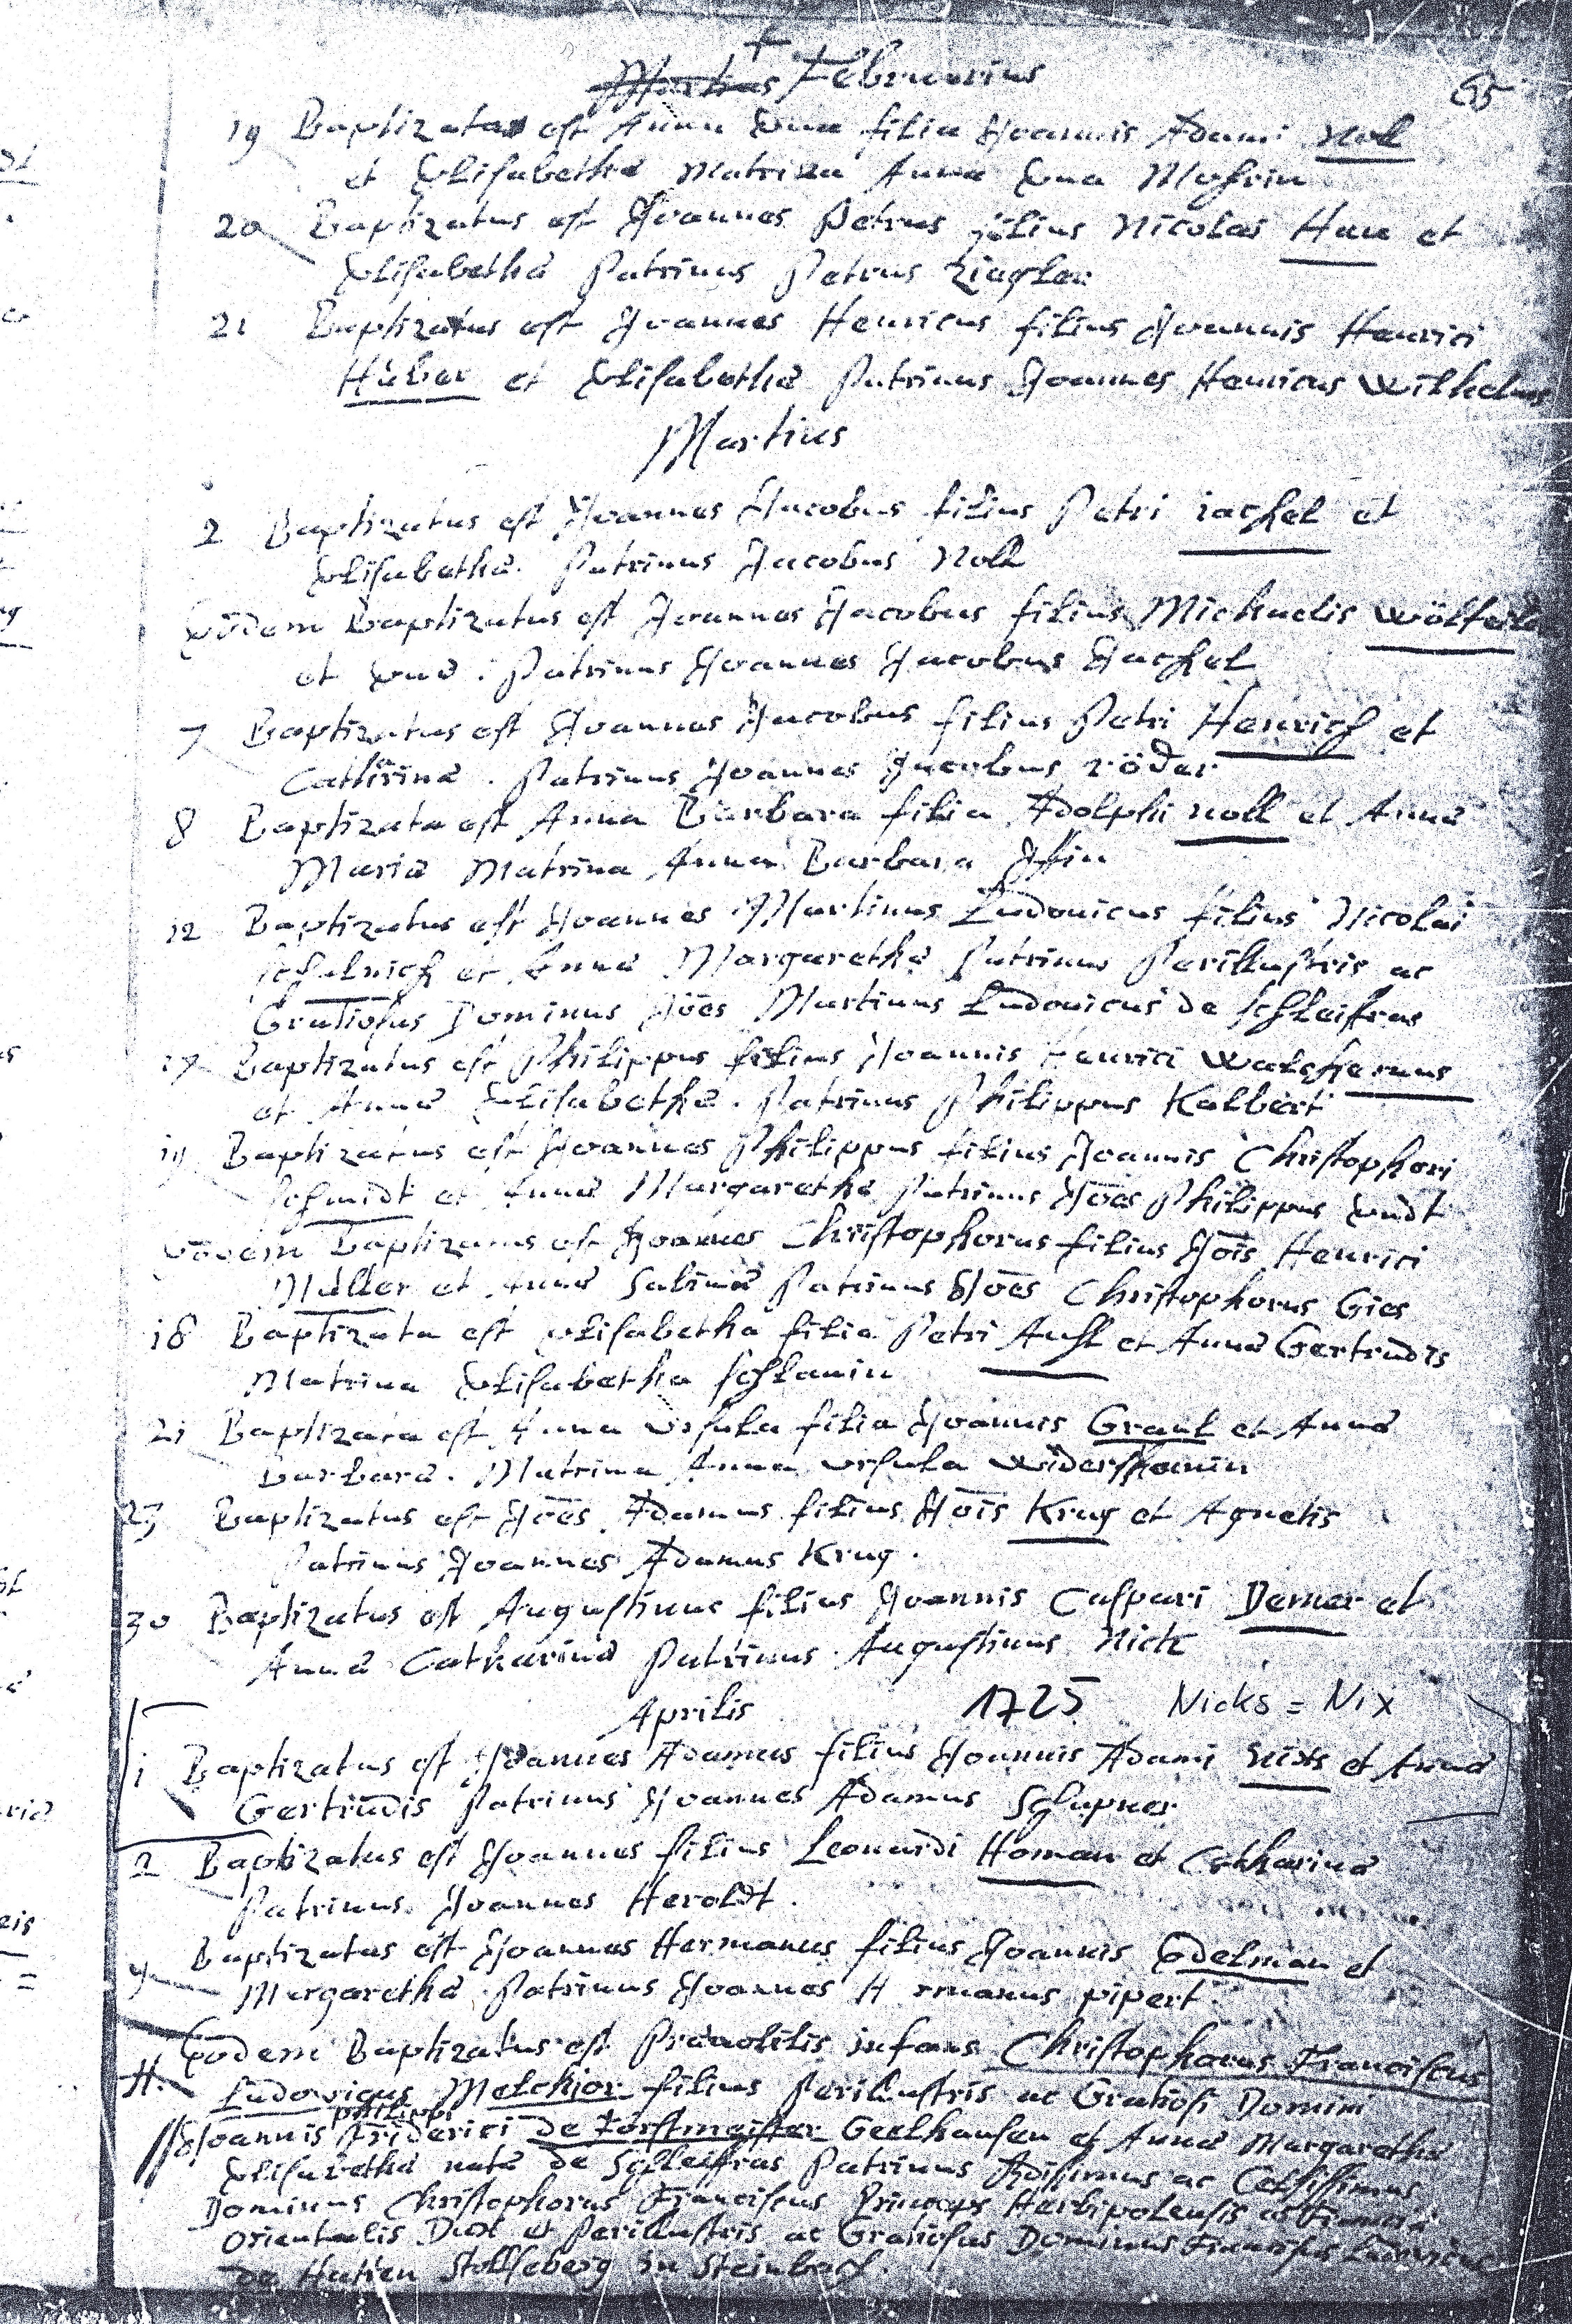 Martius Februarius
65
19 Baptizata est Anna Eva filia Joannis Adami Noll
et Elisabethæ Matrina Anna Eva
20 Baptizatus est Joannes Petrus filius Nicolai Hau et
Elisabethæ Patrinus Petrus Ziegler
21 Baptizatus est Joannes Henricus filius Joannis Henrici
Huber et Elisabethæ Patrinus Joannes Henricus Wilhelmus
Martius
2 Baptizatus est Joannes Jacobus filius Petri iachel et
Elisabethæ. Patrinus Jacobus Noll
Eodem Baptizatus est Joannes Jacobus filius Michaelis
et Evæ. Patrinus Joannes Jacobus Jachel
7 Baptizatus est Joannes Jacobus filius Petri Henrich et
Catharinæ. Patrinus Joannes Jacobus röder
8 Baptizata est Anna Barbara filia Adolphi noll et Annæ
Mariæ Matrina Anna Barbara
12 Baptizatus est Joannes Martinus Ludovicus filius Nicolai
et Annæ Margarethæ Patrinus Perillustris ac
Gratiosus Dominus Jões Martinus Ludovicus de schleifras
Baptizatus est Philippus filius Joannis Henrici
et Annæ Elisabethæ. Patrinus Philippus Kalbert
Baptizatus est Joannes Philippus filius Joannis Christophori
schmidt et Annæ Margarethæ Patrinus Jões Philippus
Eodem Baptizatus est Joannes Christophorus filius Jois Henrici
Müller et Annæ Sabinæ Patrinus Jões Christophorus Gies
18 Baptizata est Elisabetha filia Petri Auhl et Annæ Gertrudis
Matrina Elisabetha schlauin
21 Baptizata est Anna Ursula filia Joannis Graul et Annæ
Barbaræ. Matrina Anna ursula
23 Baptizatus est Jões Adamus filius Jois Krug et Agnetis
Patrinus Joannes Adamus Krug.
30 Baptizatus est Augustinus filius Joannis Caspari Demer et
Annæ Catharinæ Patrinus Augustinus Nick
Aprilis 1725 Nicks = Nix
1 Baptizatus est Joannes Adamus filius Joannis Adami Nicks et Annæ
Gertrudis Patrinus Joannes Adamus Schlapner
2 Baptizatus est Joannes filius Leonardi Homan et Catharinæ
Patrinus Joannes Heroldt.
Baptizatus est Joannes Hermanus filius Joannis Edelman et
Margarethæ Patrinus Joannes H rmanus pipert
Eodem Baptizatus est Prænobilis infans Christophorus Franciscus
Ludovicus Melchior filius Perillustris ac Gratiosi Domini
philippi
Joannis Friderici de Forstmeister Geelhausen et Annæ Margarethæ
Elisabethæ natæ de Schleiffras Patrinus ac Celsissimus
Dominus Christophorus Franciscus Princeps Herbipolensis ac Franciæ
orientalis Dux et Perillustris ac Gratiosus Dominus Franciscus Ludovicus
in Steinbach.